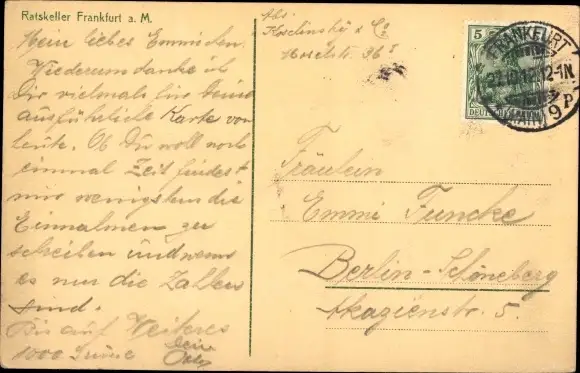 Ratskeller Frankfurt a. M.
Mein liebes Emmichen.
Wiederum danke ich
Dir vielmals für Deine
ausführliche Karte von
heute. Ob Du wohl noch
einmal Zeit findest
mir wenigstens die
Einnahmen zu
schreiben und wenns
es nur die Zahlen
sind.
Bis auf Weiteres
1000 Grüsse Dein
Abs.
& Co
Moselstr. 36
5
FRANKFURT
(MAIN) 9
Fräulein
Emmi Funcke
Berlin-Schöneberg
Akazienstr. 5.